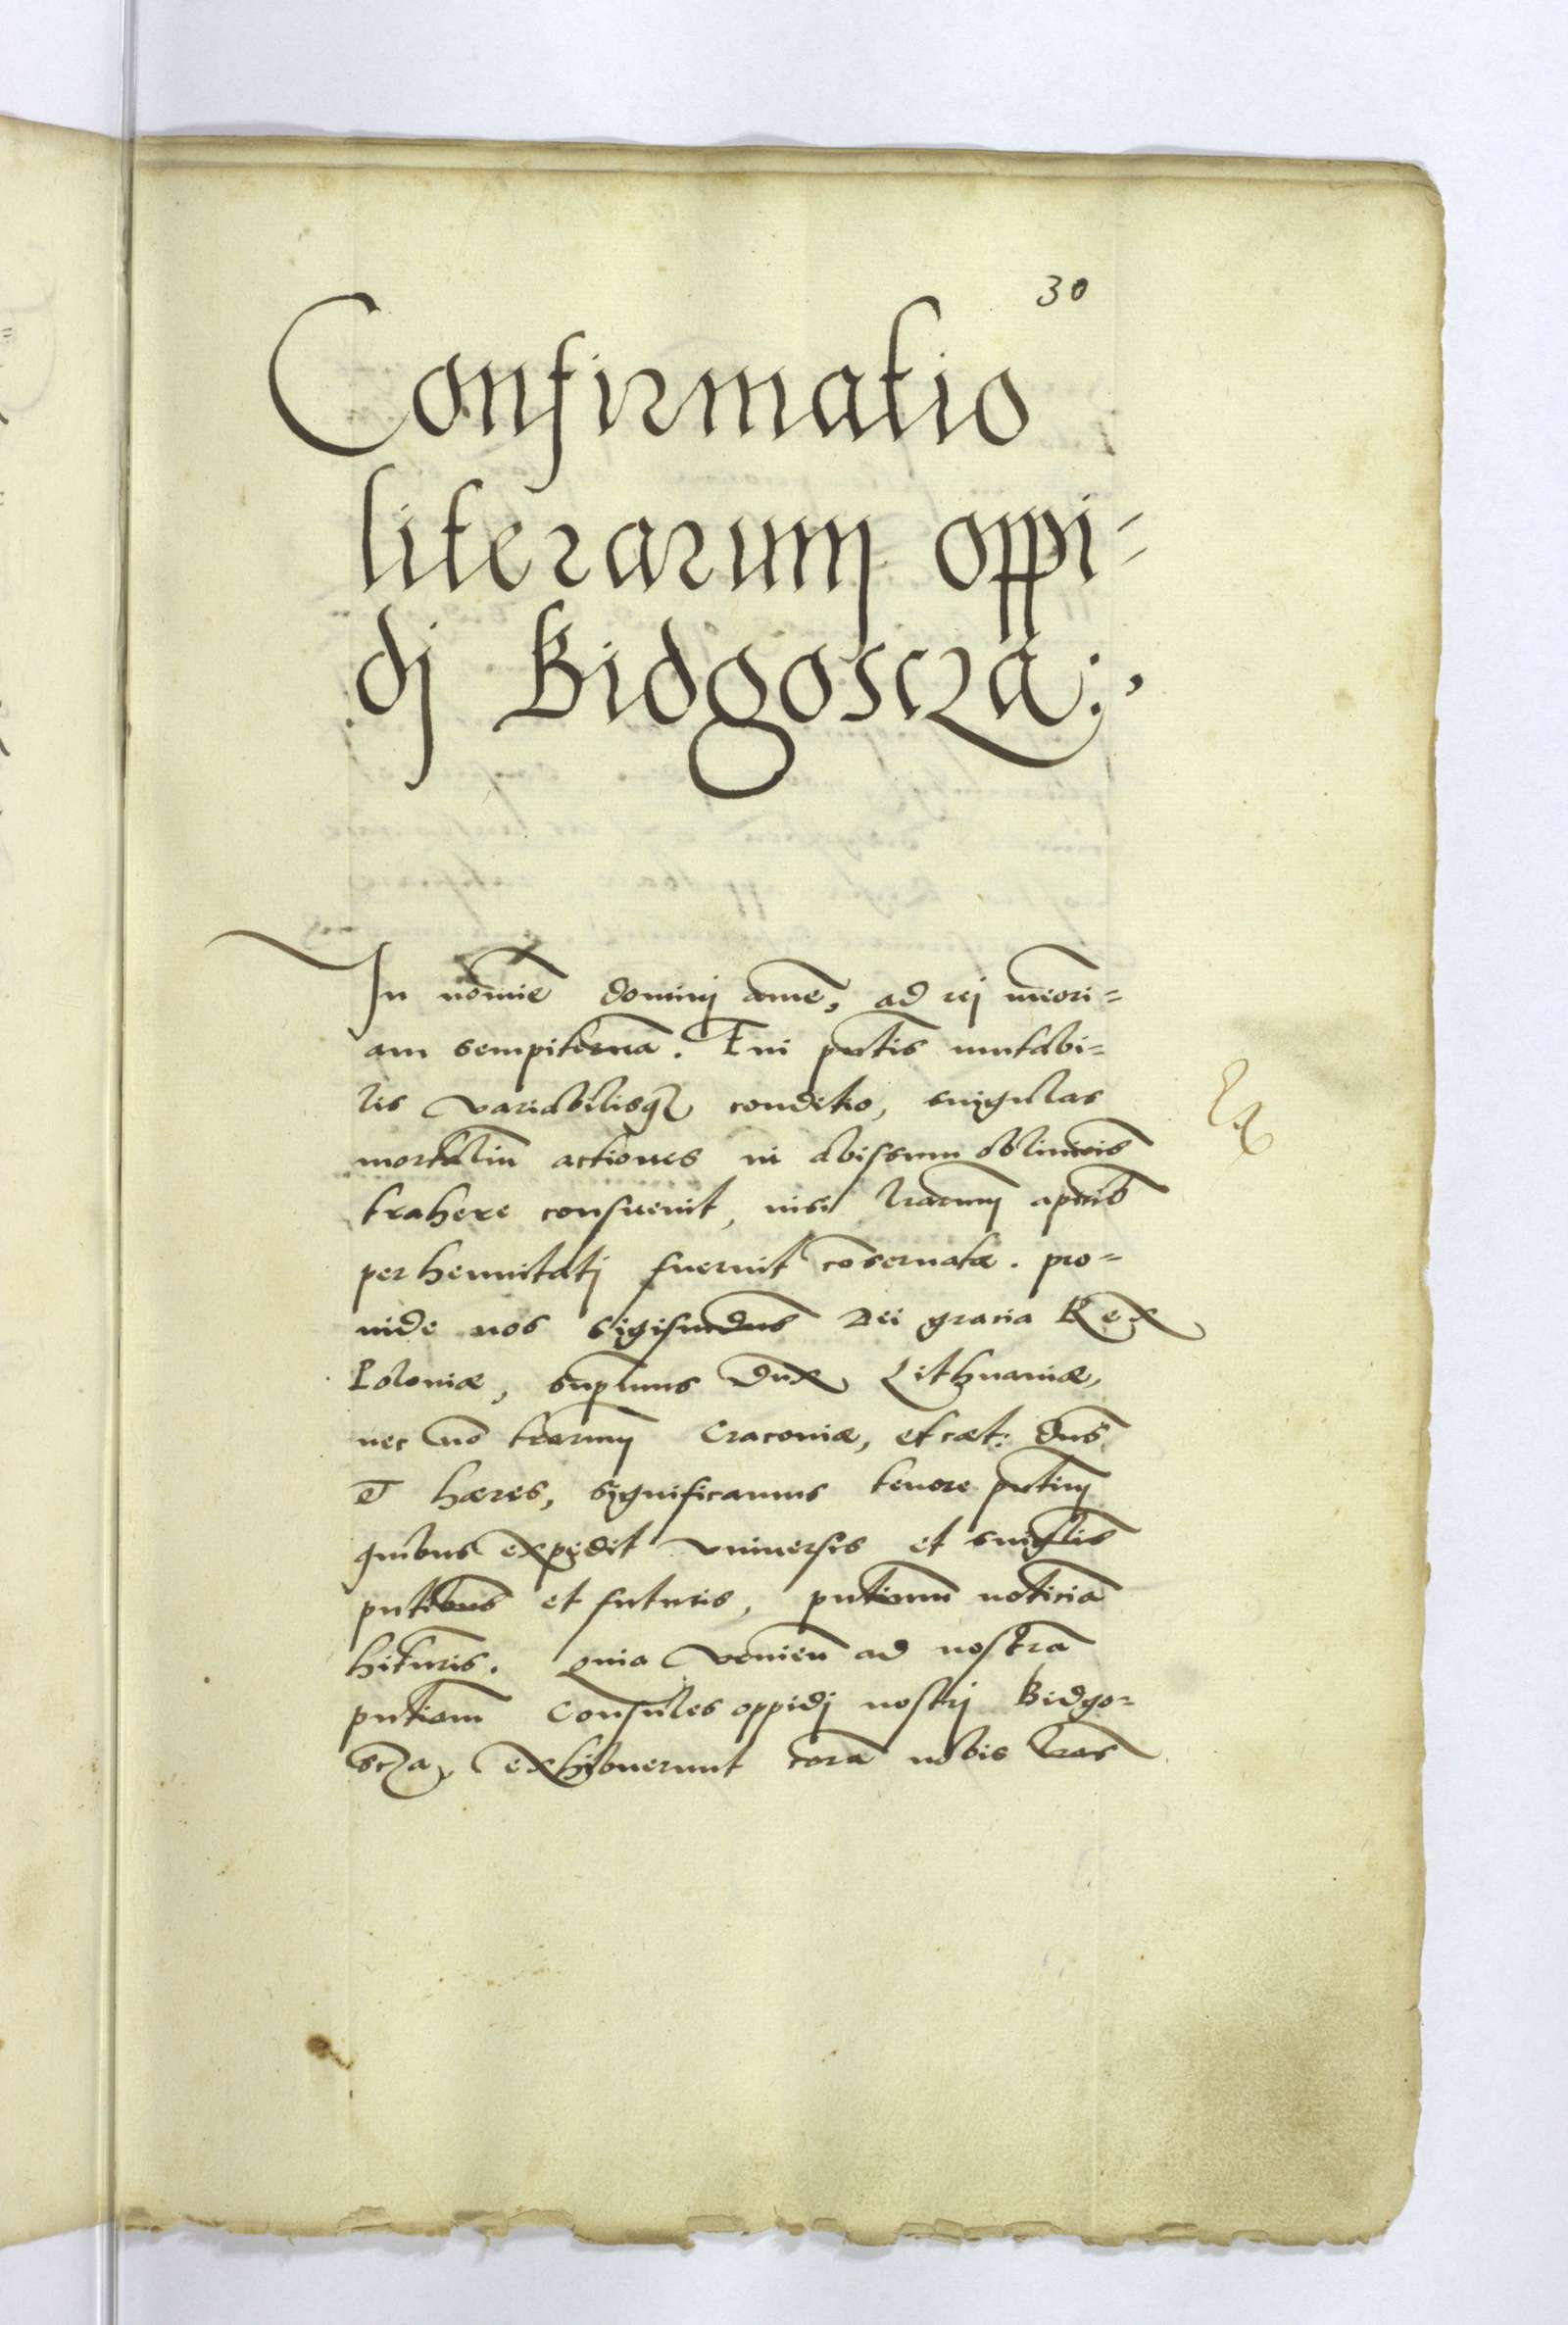 30
Confirmatio
literarum oppi-
dj Bidgoscza:,
In nomie dominj ame, ad rej meori-
am sempiterna. Eui pntis mutabi-
lis variabilisq conditio, singulas
mortaliu actiones in abissum obliuiois
trahere consueuit, nisi lrarum apicib
perhennitatj fuerint coseruatæ. pro-
inde nos Sigismdus Dei gracia Rex
Poloniæ, supmus Dux Lithuaniæ,
nec no trarum Cracouiæ, et cæt: dns
et hæres, significamus tenore pntium
quibus expedit vniuersis et singlis
pntibus et futuris, pntium noticia
hituris. Quia venien ad nostra
pntiam Consules oppidj nostrj Bidgo-
scza, exhibuerunt cora nobis lras